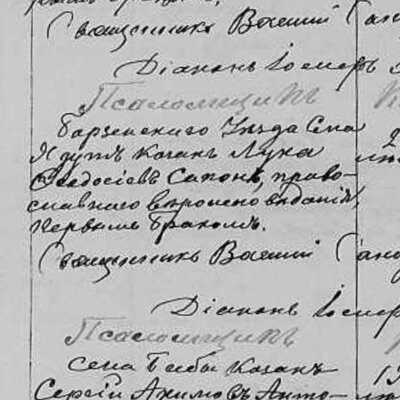 Священникъ Василій
Діаконъ Іосифъ
Псаломщикъ
Борзенскаго Уѣзда Села
Ядутъ козакъ Лука
Ѳеодосіевъ Сапонъ, право-
славнаго вѣроисповѣданія,
первымъ бракомъ.
Священникъ Василій
Діаконъ Іосифъ
Псаломщикъ
села Бабы козакъ
Сергій Акимовъ Анто-